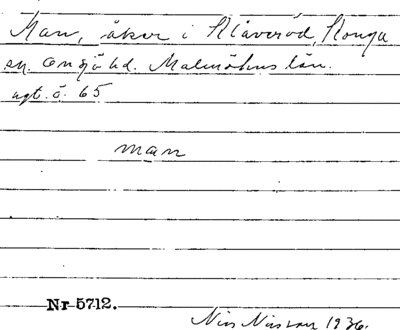 Man, åker i Klåveröd, Konga
sn. Onsjö hd. Malmöhus län.
ägt. ö. 65
man
Nr 5712.
Nils Nilsson 1936.